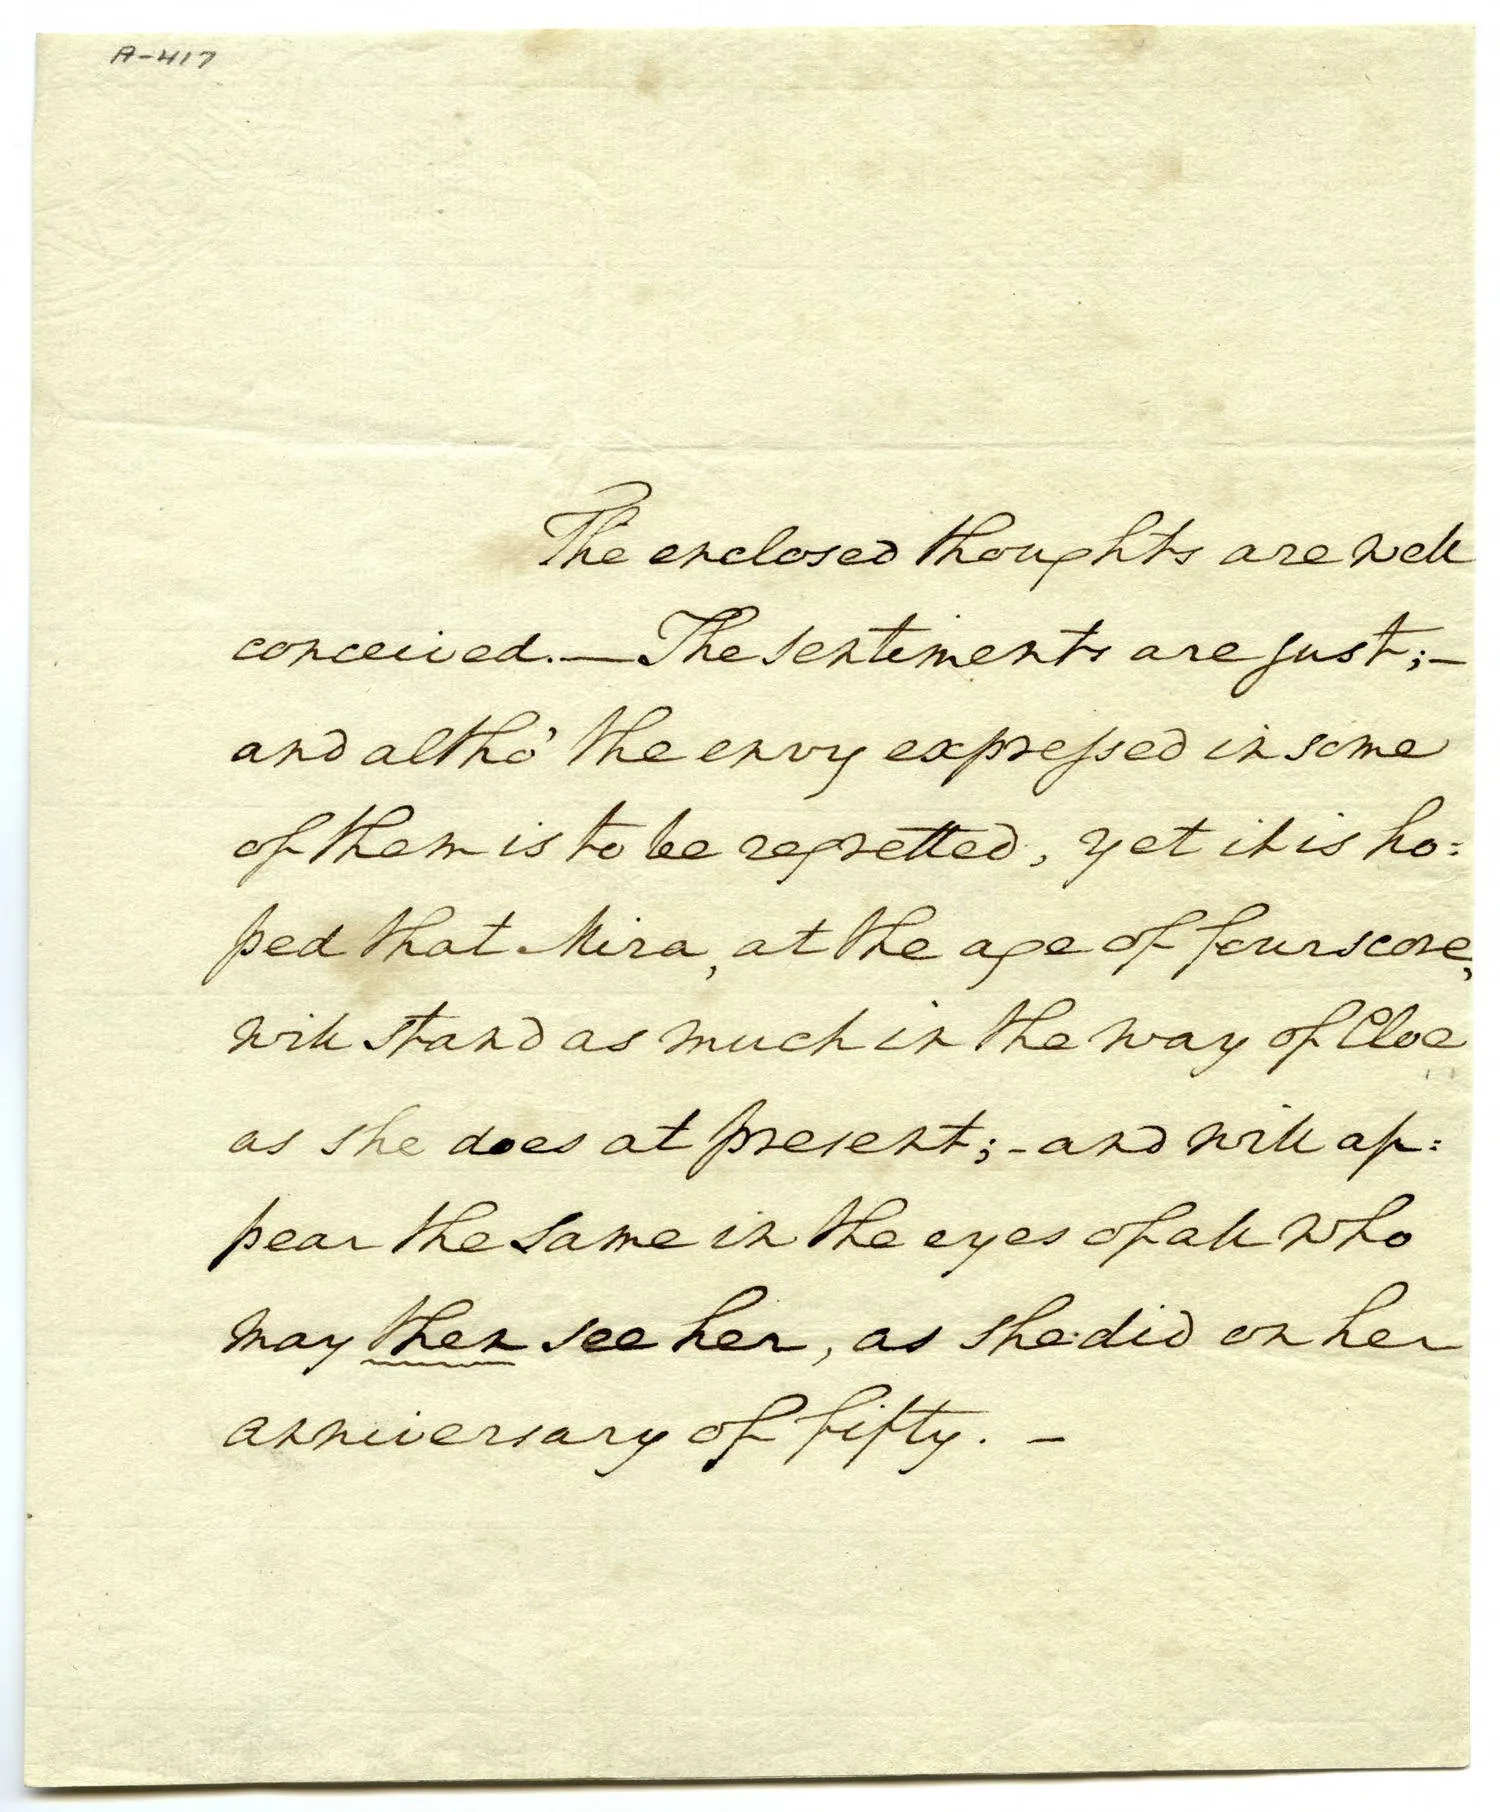 A-417
The enclosed thoughts are well
conceived.— The sentiments are just;—
and altho' the envy expressed in some
of them is to be regretted, yet it is ho=
ped that Mira, at the age of fourscore,
will stand as much in the way of Cloe
as she does at present;- and will ap=
pear the same in the eyes of all who
may then see her, as she did on her
anniversary of fifty. —